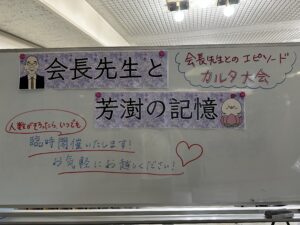 会長先生と
会長先生とのエピソード
カルタ大会
芳澍の記憶
人数がそろったら、いつでも
臨時開催いたします!
お気軽にお越しください!